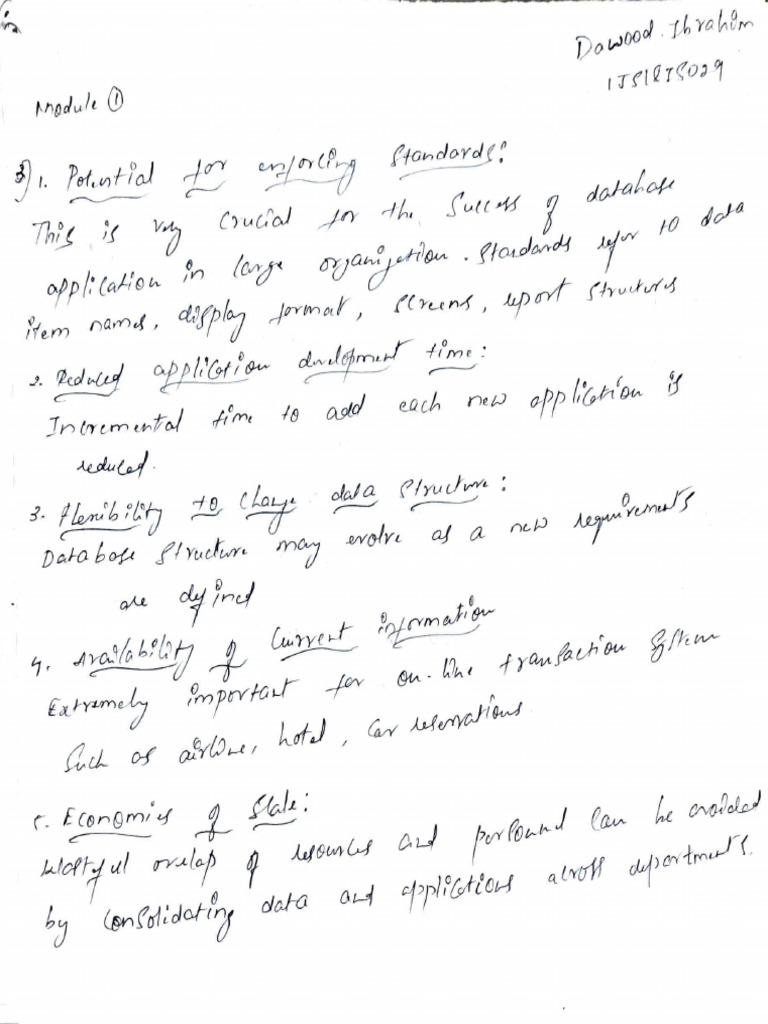 Dawood. Ibrahim
1JS18IS029
Module ①
3) 1. Potential for enforcing Standards:
This is very crucial for the Success of database
application in large organization. Standards refer to data
item names, display format, screens, report structures
2. Reduced application development time:
Incremental time to add each new application is
reduced.
3. Flexibility to change data structure:
Database structure may evolve as a new requirements
are defined
4. Availability of Current information
Extremely important for on-line transaction system
Such as airline, hotel, car reservations.
5. Economies of Scale:
Wasteful overlap of resources and personnel can be avoided
by consolidating data and applications across departments.